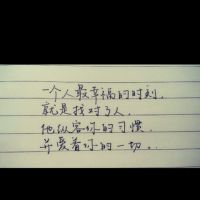 一个人最幸福的时刻,
就是找对了人,
他纵容你的习惯,
并爱着你的一切..